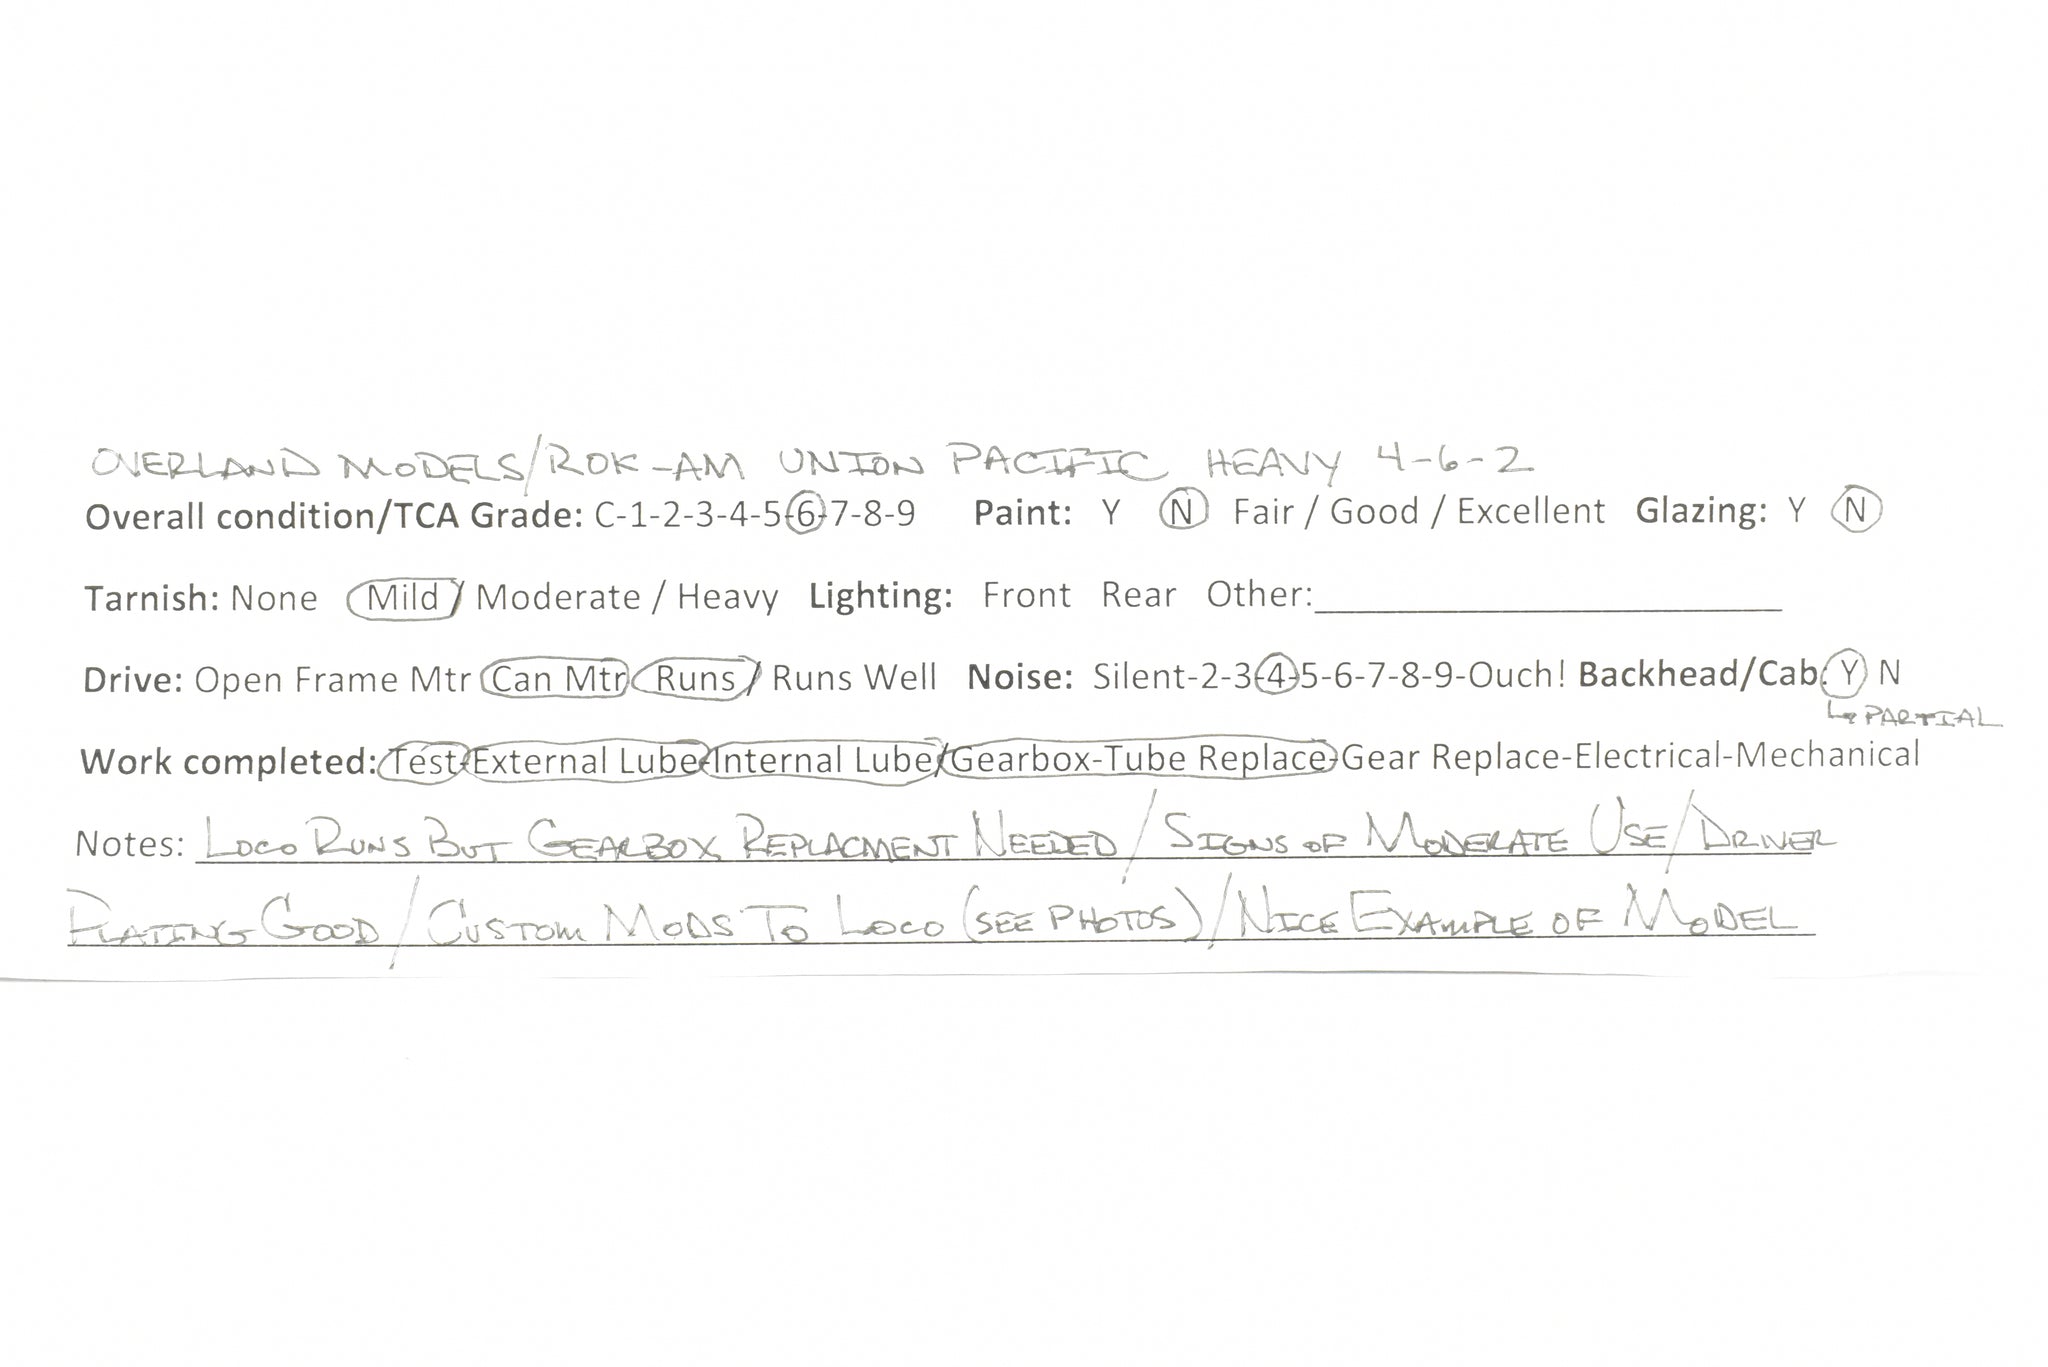 OVERLAND MODELS/ROK-AM UNION PACIFIC HEAVY 4-6-2
Overall condition/TCA Grade: C-1-2-3-4-5-6-7-8-9 Paint: Y N Fair / Good / Excellent Glazing: Y N
Tarnish: None Mild / Moderate / Heavy Lighting: Front Rear Other:
Drive: Open Frame Mtr Can Mtr Runs / Runs Well Noise: Silent-2-3-4-5-6-7-8-9-Ouch! Backhead/Cab: Y N
↳ PARTIAL
Work completed: Test-External Lube-Internal Lube/Gearbox-Tube Replace-Gear Replace-Electrical-Mechanical
Notes: LOCO RUNS BUT GEARBOX REPLACMENT NEEDED / SIGNS OF MODERATE USE / DRIVER
PLATING GOOD / CUSTOM MODS TO LOCO (SEE PHOTOS) / NICE EXAMPLE OF MODEL